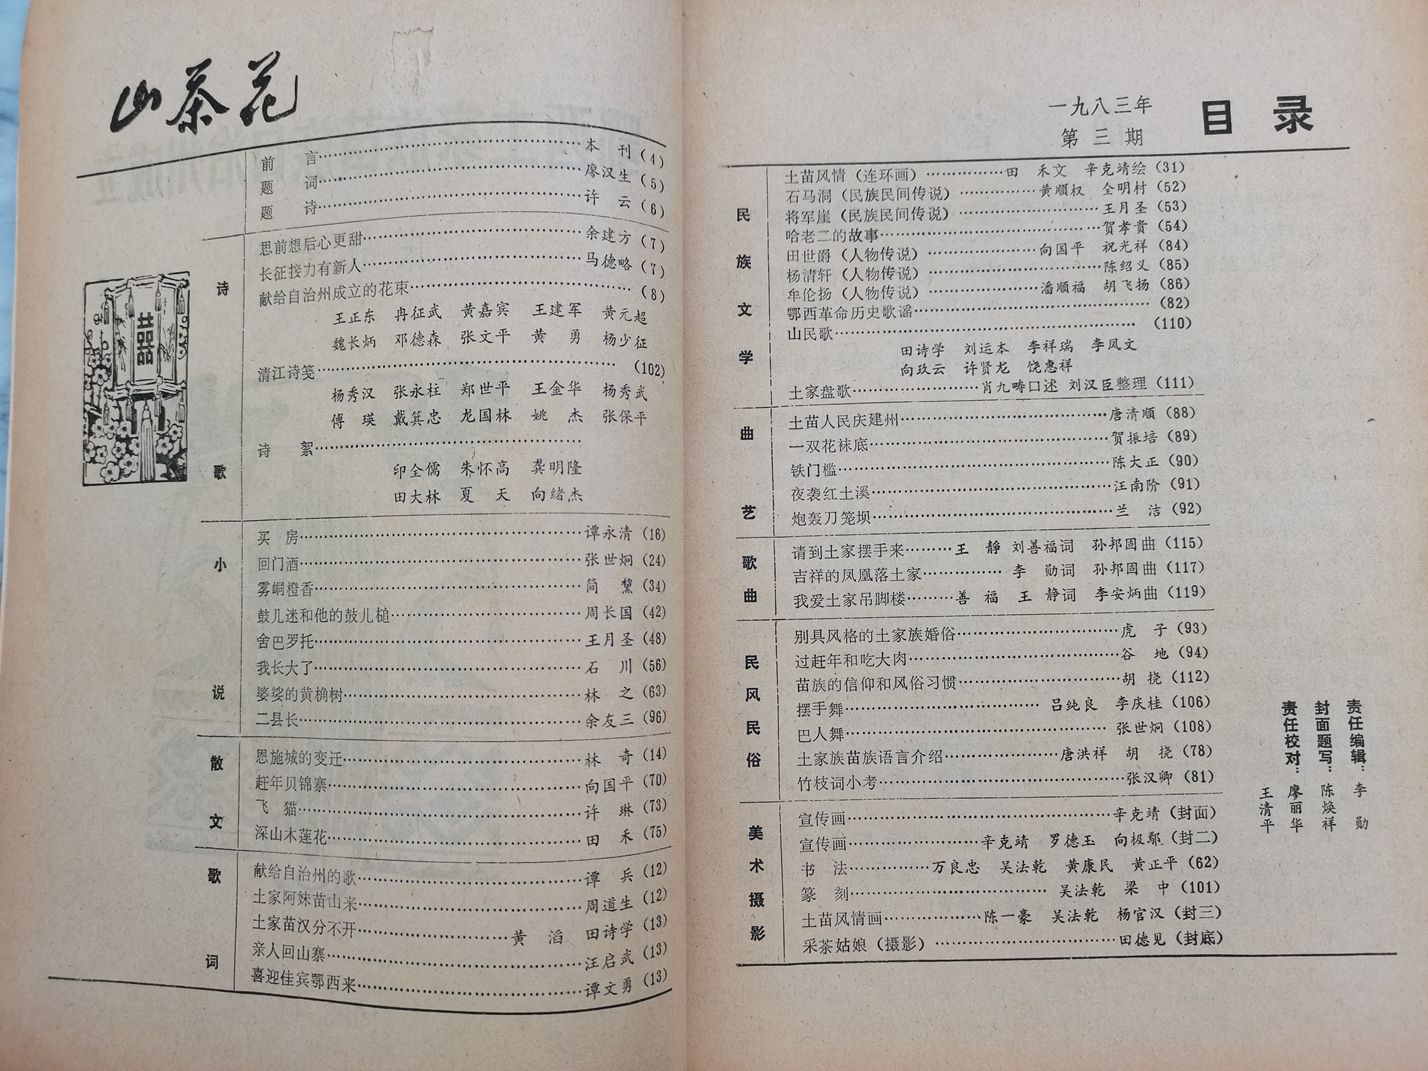 山茶花
前言……本刊(4)
题词……廖汉生(5)
题诗……许云(6)
诗歌
思前想后心更甜……余建方(7)
长征接力有新人……马德略(7)
献给自治州成立的花束……(8)
王正东 冉征武 黄嘉宾 王建军 黄元超
魏长炳 邓德森 张文平 黄勇 杨少征
清江诗笺……(102)
杨秀汉 张永柱 郑世平 王金华 杨秀武
傅瑛 戴箕忠 龙国林 姚杰 张保平
诗絮……
印全儒 朱怀高 龚明隆
田大林 夏天 向绪杰
小说
买房……谭永清(16)
回门酒……张世炯(24)
雾峒橙香……简黧(34)
鼓儿迷和他的鼓儿槌……周长国(42)
舍巴罗托……王月圣(48)
我长大了……石川(56)
婆娑的黄桷树……林之(63)
二县长……余友三(96)
散文
恩施城的变迁……林奇(14)
赶年贝锦寨……向国平(70)
飞猫……许琳(73)
深山木莲花……田禾(75)
歌词
献给自治州的歌……谭兵(12)
土家阿妹苗山来……周道生(12)
土家苗汉分不开……黄滔 田诗学(13)
亲人回山寨……汪启武(13)
喜迎佳宾鄂西来……谭文勇(13)
一九八三年
第三期
目录
民族文学
土苗风情（连环画）……田禾文 辛克靖绘(31)
石马洞（民族民间传说）……黄顺权 全明村(52)
将军崖（民族民间传说）……王月圣(53)
哈老二的故事……贺孝贵(54)
田世爵（人物传说）……向国平 祝光祥(84)
杨清轩（人物传说）……陈绍义(85)
牟伦扬（人物传说）……潘顺福 胡飞扬(86)
鄂西革命历史歌谣……(82)
山民歌……(110)
田诗学 刘运本 李祥瑞 李风文
向玖云 许贤龙 饶惠祥
土家盘歌……肖九畴口述 刘汉臣整理(111)
曲艺
土苗人民庆建州……唐清顺(88)
一双花袜底……贺振培(89)
铁门槛……陈大正(90)
夜袭红土溪……汪南阶(91)
炮轰刀笼坝……兰洁(92)
歌曲
请到土家摆手来……王静 刘善福词 孙邦固曲(115)
吉祥的凤凰落土家……李勋词 孙邦固曲(117)
我爱土家吊脚楼……善福 王静词 李安炳曲(119)
民风民俗
别具风格的土家族婚俗……虎子(93)
过赶年和吃大肉……谷地(94)
苗族的信仰和风俗习惯……胡挠(112)
摆手舞……吕纯良 李庆桂(106)
巴人舞……张世炯(108)
土家族苗族语言介绍……唐洪祥 胡挠(78)
竹枝词小考……张汉卿(81)
美术摄影
宣传画……辛克靖(封面)
宣传画……辛克靖 罗德玉 向极鄢(封二)
书法……万良忠 吴法乾 黄康民 黄正平(62)
篆刻……吴法乾 梁中(101)
土苗风情画……陈一豪 吴法乾 杨官汉(封三)
采茶姑娘（摄影）……田德见(封底)
责任编辑：李勋
封面题写：陈焕祥
责任校对：廖丽华
王清平